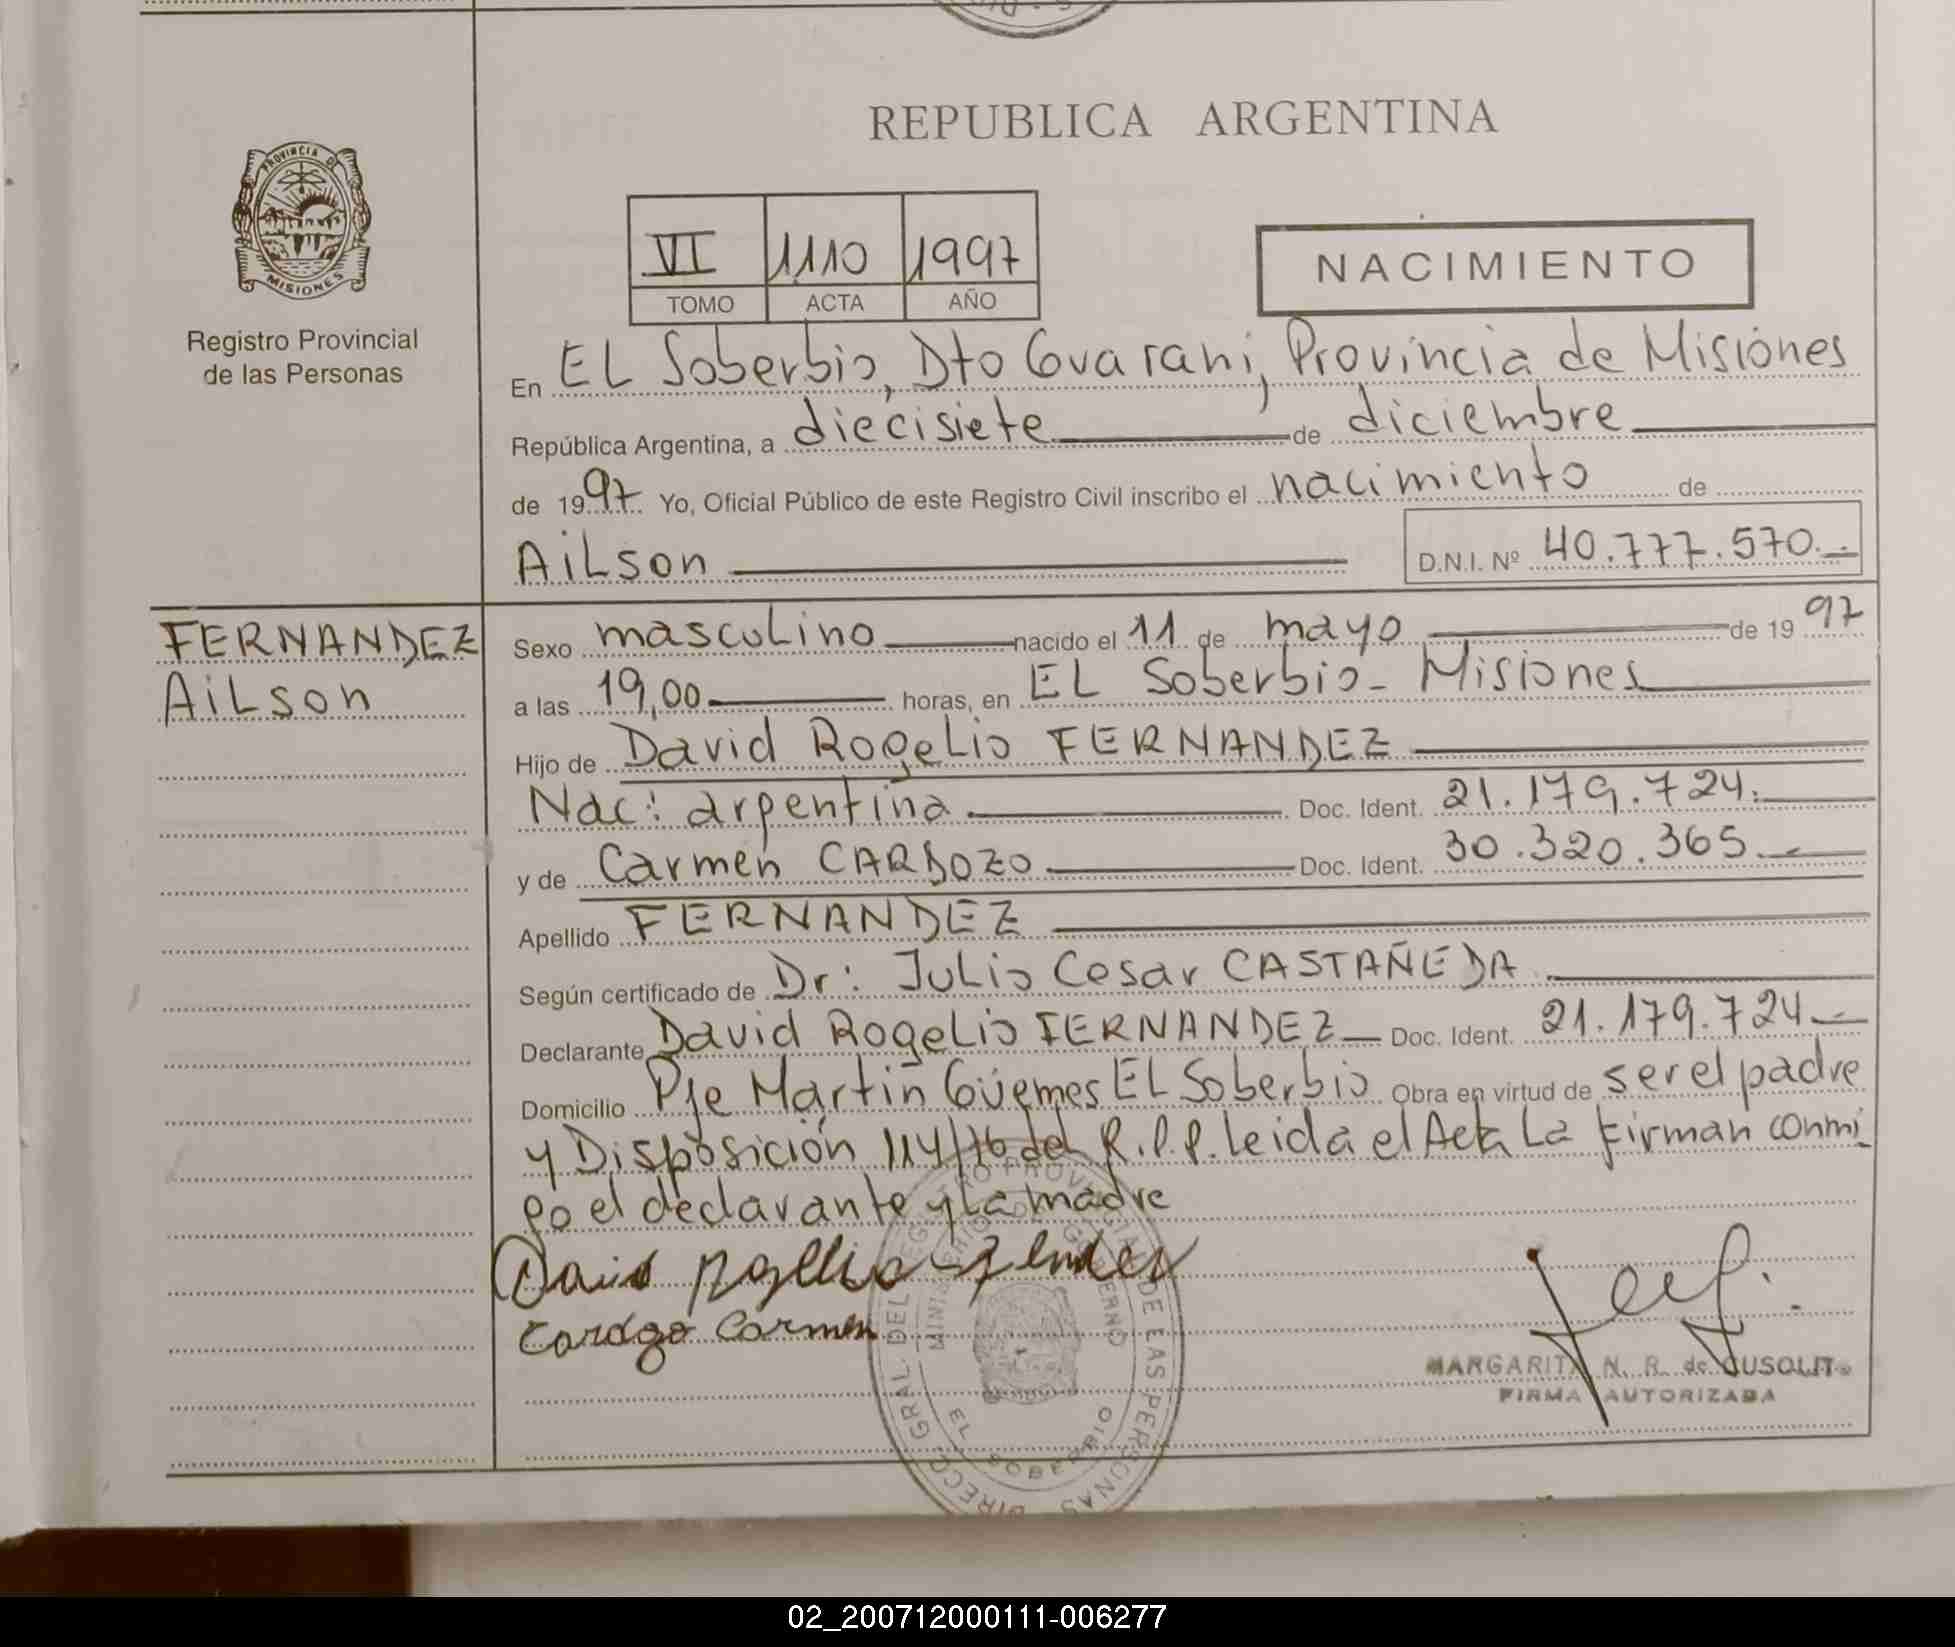 REPUBLICA ARGENTINA
PROVINCIA DE
MISIONES
Registro Provincial
de las Personas
VI 1110 1997
TOMO ACTA AÑO
NACIMIENTO
En EL Soberbio, Dto Guarani, Provincia de Misiones
República Argentina, a diecisiete de diciembre
de 1997 Yo, Oficial Público de este Registro Civil inscribo el nacimiento de
AiLson D.N.I. Nº 40.777.570.-
FERNANDEZ
AiLson
Sexo mascuLino nacido el 11 de mayo de 1997
a las 19,00 horas, en EL Soberbio - Misiones
Hijo de David RogeLio FERNANDEZ
Nac: argentina Doc. Ident. 21.179.724.
y de Carmen CARDOZO Doc. Ident. 30.320.365.-
Apellido FERNANDEZ
Según certificado de Dr: JuLio Cesar CASTAÑEDA
Declarante David RogeLio FERNANDEZ Doc. Ident. 21.179.724-
Domicilio Pje Martin Güemes EL Soberbio Obra en virtud de ser el padre
y Disposición 114/76 del R.P.P. Leida el Acta La firman conmi
go el declarante y La madre
David Rogelio
Carmen
MARGARITA N. R. de CUSOLIT
FIRMA AUTORIZADA
DIRECC GRAL DEL REGISTRO PROVINCIAL DE LAS PERSONAS
MINISTERIO DE GOBIERNO
EL SOBERBIO
02_200712000111-006277